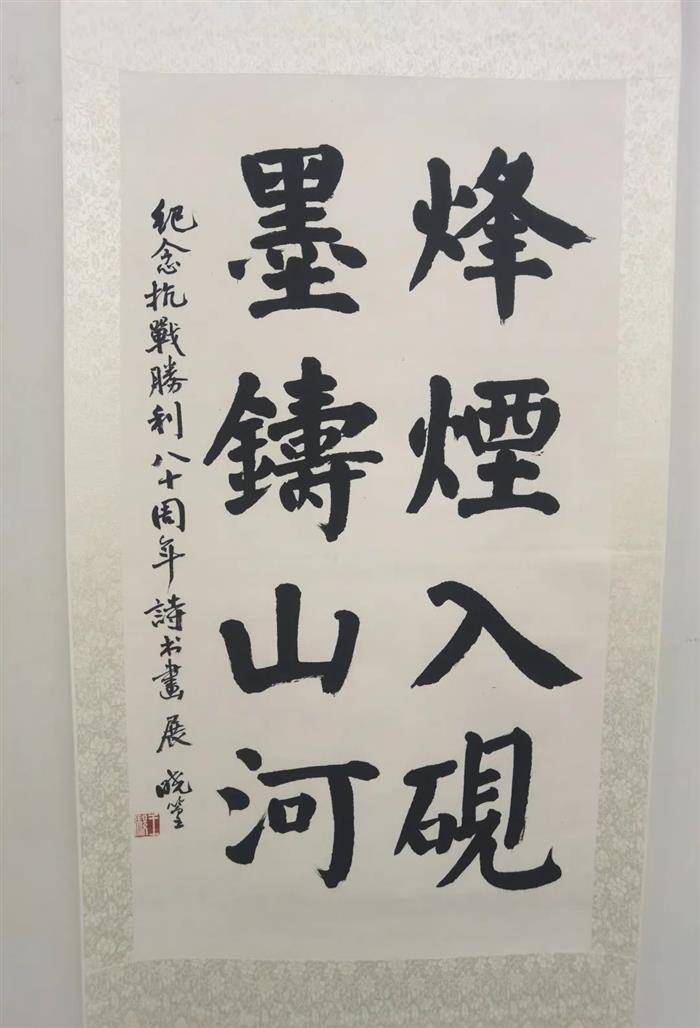 烽煙入硯
墨鑄山河
紀念抗戰勝利八十周年詩书畫展 曉篁